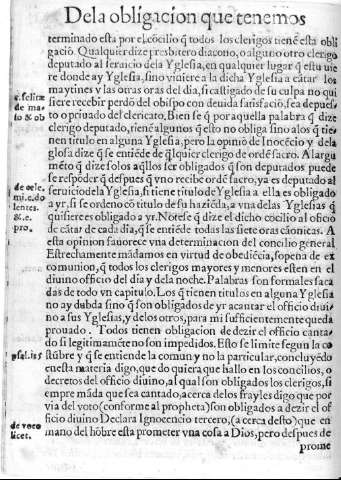 De la obligacion que tenemos
terminado esta por el cõcilio q̃ todos los clerigos tienẽ esta obli
gaciõ. Qualquier dize presbitero diacono, o alguno otro clerigo
deputado al seruicio dela Yglesia, en qualquier lugar q̃ esta uie
re donde ay Yglesia, sino viniere a la dicha Yglesia a cãtar los
maytines y las otras oras del dia, si castigado de su culpa no qui
siere recebir perdõ del obispo con deuida satisfaciõ, sea depues
to o priuado del clericato. Bien se q̃ por aquella palabra q̃ dize
clerigo deputado, tienẽ algunos q̃ esto no obliga sino alos q̃ tie
nen titulo en alguna Yglesia, pero la opiniõ de Inocẽcio y dela
glosa dize q̃ se entiẽde de q̃lquier clerigo de ordẽ sacro. Al argu
mẽto q̃ dize solos aq̃llos ser obligados q̃ son deputados puede
se respõder q̃ despues q̃ vno recibe ordẽ sacro, ya es deputado al
seruicio dela Yglesia, si tiene titulo de Yglesia a ella es obligado
a yr, si se ordeno cõ titulo de su haziẽda, a vna delas Yglesias q̃
quisiere es obligado a yr. Notese q̃ dize el dicho cõcilio al oficio
de cãtar de cada dia, q̃ se entiẽde todas las siete oras cãonicas. A
esta opinion fauorece vna determinacion del concilio general
Estrechamente mãdamos en virtud de obediẽcia, so pena de ex
comunion, q̃ todos los clerigos mayores y menores esten en el
diuino officio del dia y dela noche. Palabras son formales saca
das de todo vn capitulo. Los q̃ tienen titulos en alguna Yglesia
no ay dubda sino q̃ son obligados de yr acantar el officio diui
no a sus Yglesias, y delos otros, para mi sufficientemente queda
prouado. Todos tienen obligacion de dezir el officio canta-
do si legitimamẽte no son impedidos. Esto se limite segun la co
stũbre y q̃ se entiende la comun y no la particular, concluyẽdo
en esta materia digo, que do quiera que hallo en los concilios, o
decretos del officio diuino, al qual son obligados los clerigos, si
empre mãda que sea cantado, acerca delos frayles digo que por
via del voto (conforme al propheta) son obligados a dezir el of
ficio diuino Declara Ignocencio tercero, (a cerca desto) que en
mano del hõbre esta prometer vna cosa a Dios, pero despues de
prome
c. felitæ
de ma-
io & ob
de cele.
mi. c. do
lentes.
&. e.
pro.
psal. 15
de voto
licet.